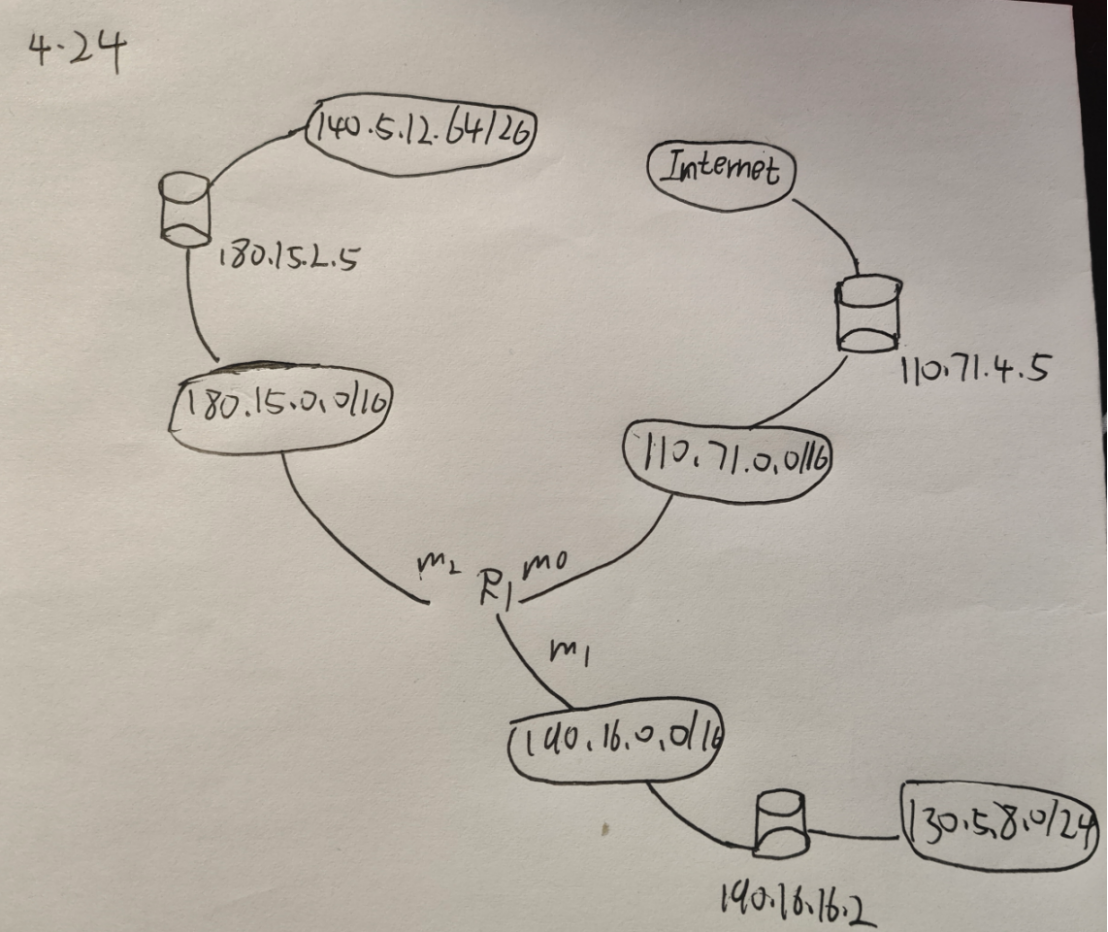 4.24
140.5.12.64/26
Internet
180.15.2.5
110.71.4.5
180.15.0.0/16
110.71.0.0/16
m2
R1
m0
m1
190.16.0.0/16
130.5.8.0/24
190.16.16.2